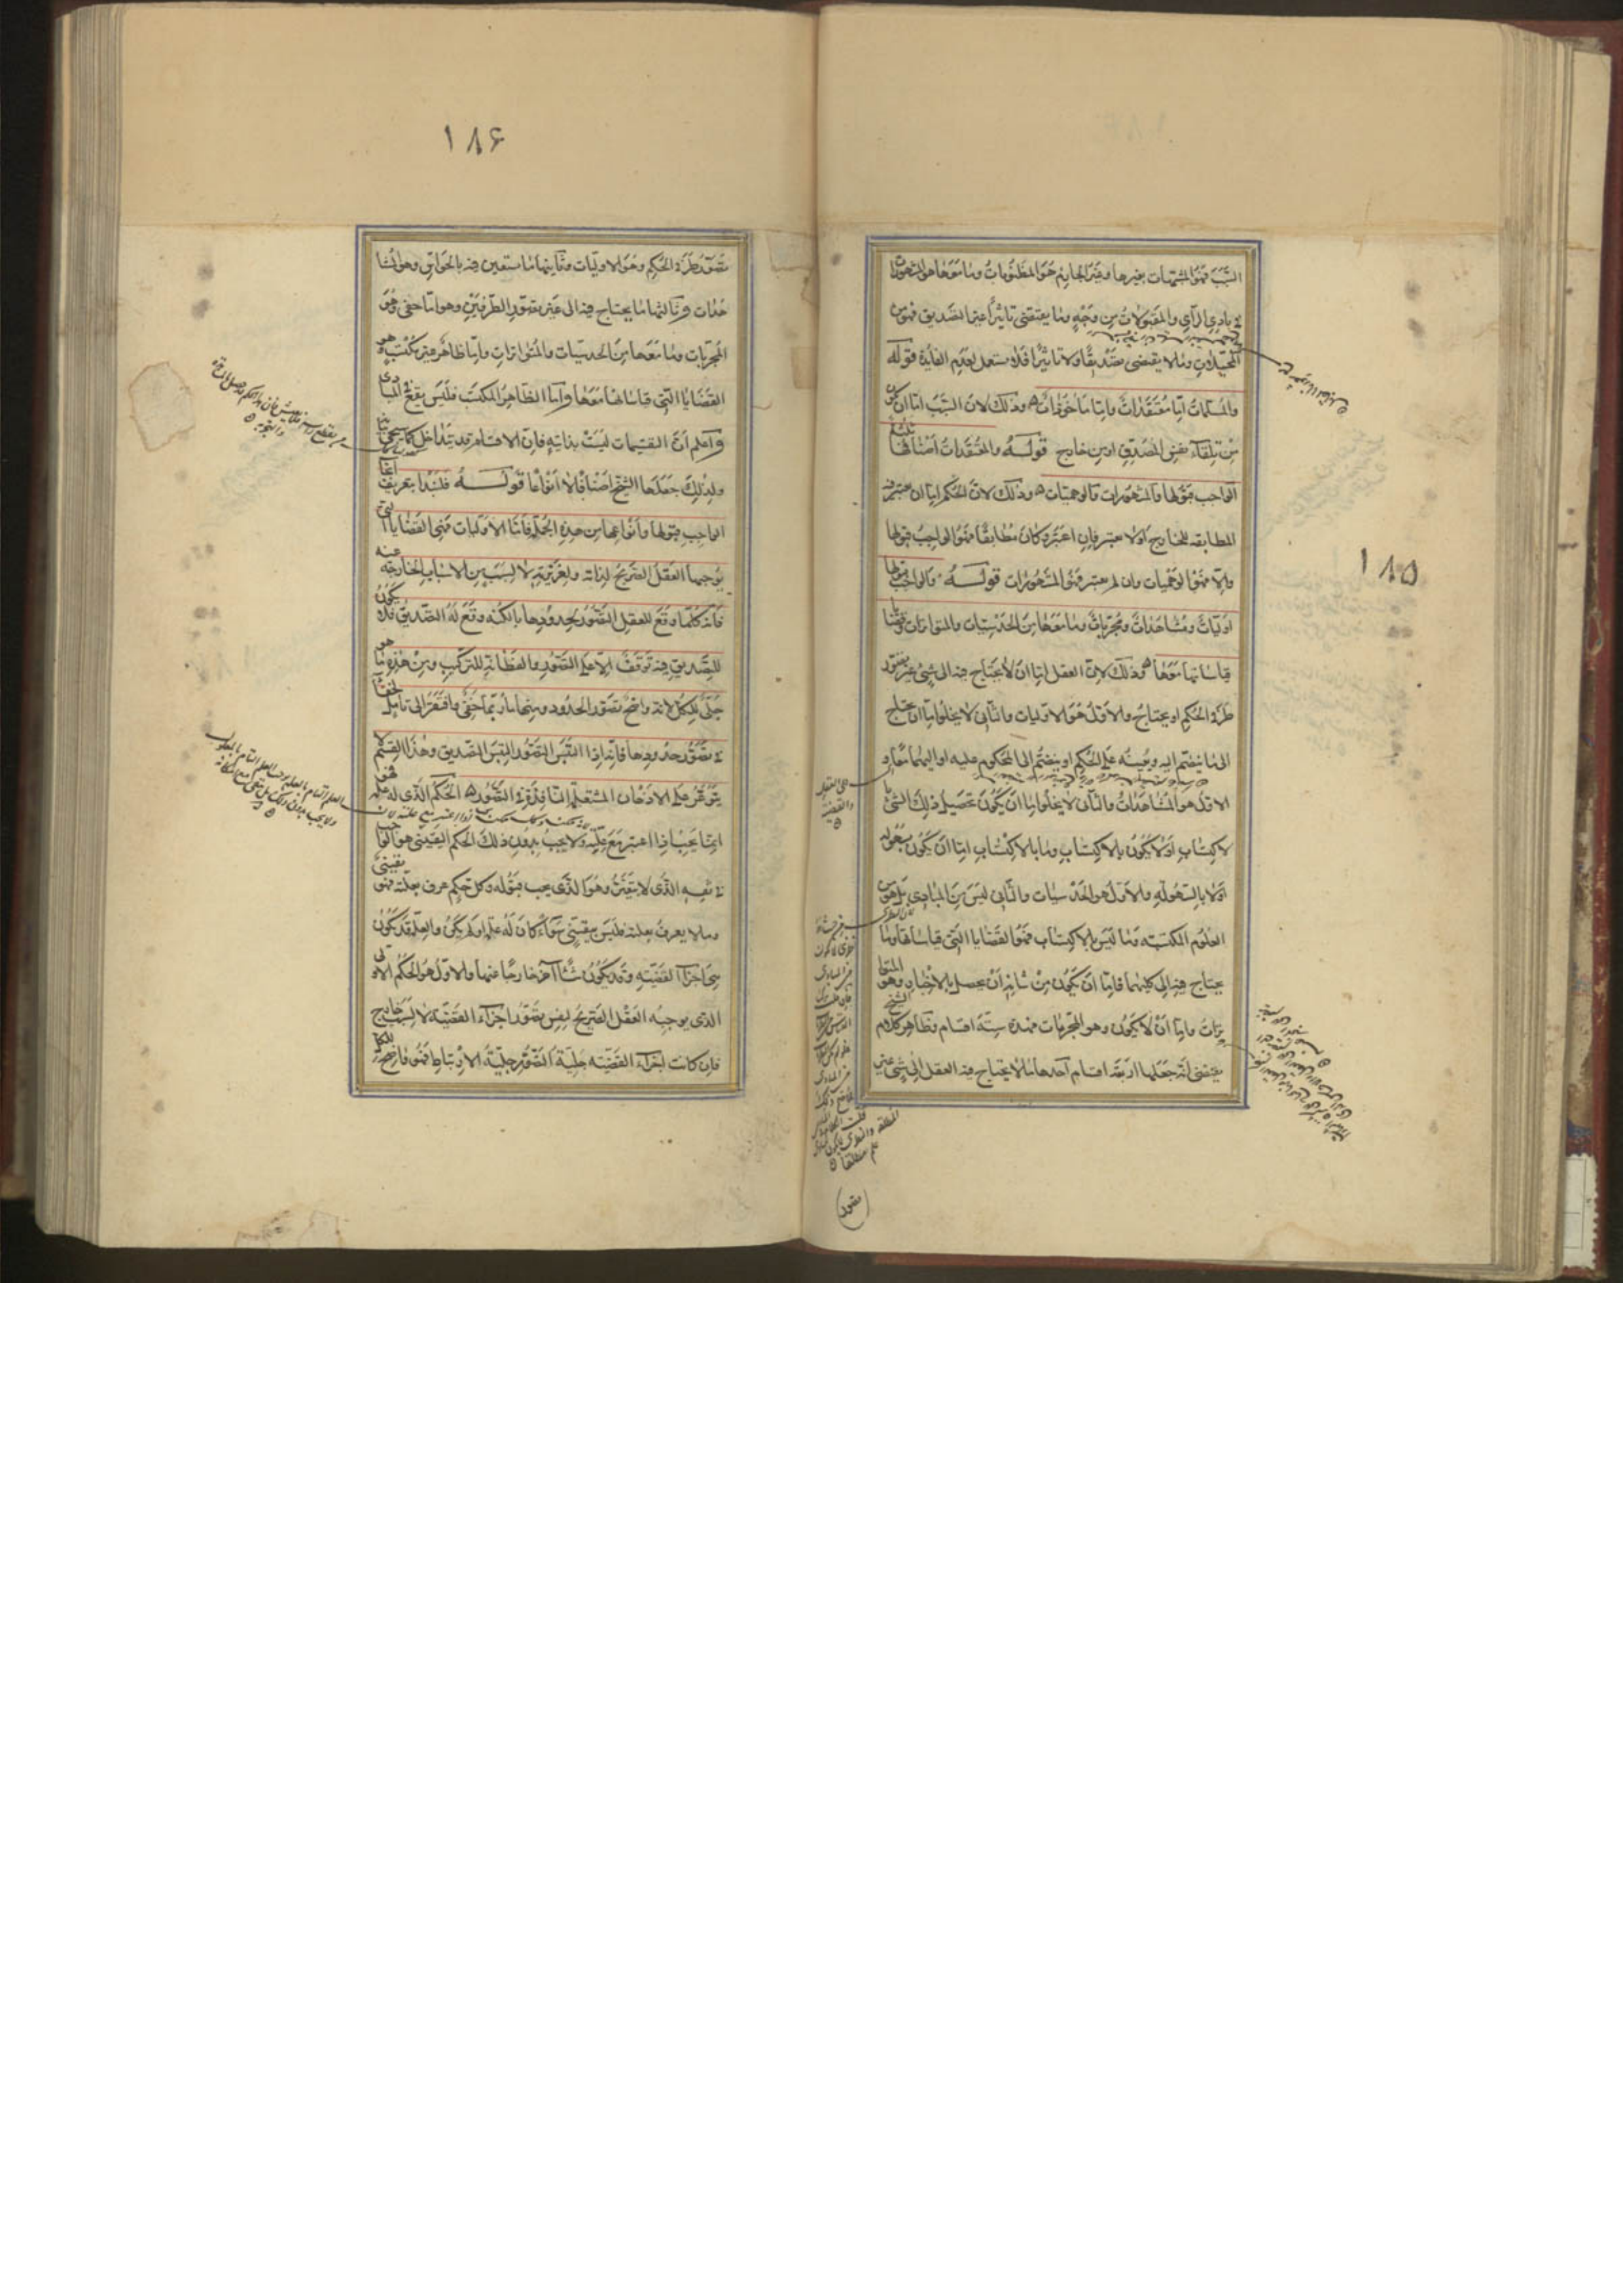 ١٨٥
السبب فهو المشبهات بغيرها وغير الجازم هو المظنونات وما معها هو المشهورات
في بادي الرأي والمقبولات من وجه وما يقتضي تاثيرا غير التصديق فهو من
المخيلات وما لا يقتضي تصديقا ولا تاثيرا فلا يستعمل لعدم الفايدة قوله
والمسلمات اما معتقدات واما ماخوذات وذلك لان السبب اما ان يكون
من تلقاء نفس المصدق او من خارج قوله والمعتقدات اصنافها ثلثة
الواجب قبولها والمشهورات والوهميات وذلك لان الحكم اما ان يعتبر فيه
المطابقه للخارج اولا يعتبر فان اعتبر وكان مطابقا فهو الواجب قبولها
والا فهو الوهميات وان لم يعتبر فهو المشهورات قوله والواجب قبولها
اوليات ومشاهدات ومجربات وما معها من الحدسيات والمتواترات وقضايا
قياساتها معها وذلك لان العقل اما ان لا يحتاج فيه الى شيئ غير تصور
طرفي الحكم او يحتاج والاول هو الاوليات والثاني لا يخلوا اما ان يحتاج
الى ما ينضم اليه ويعينه على الحكم او ينضم الى المحكوم عليه او اليهما معا و
الاول هو المشاهدات والثاني لا يخلوا اما ان يكون تحصيل ذلك الشيئ با
لاكتساب او لا يكون بالاكتساب وما بالاكتساب اما ان يكون بسهولة
اولا بالسهولة والاول هو الحدسيات والثاني ليس من المبادي بل هو من
العلوم المكتسبه وما ليس بالاكتساب فهو القضايا التي قياساتها وما
يحتاج فيه الى كليهما فاما ان يكون من شانه ان يحصل بالاخبار وهو المتوا
ترات واما ان لا يكون وهو المجربات فهذه ستة اقسام وظاهر كلام الشيخ
يقتضي انه جعلها اربعة اقسام احدها ما لا يحتاج فيه العقل الى شيئ غير
على العقل
والقضية
تصور
١٨۶
تصور طرفي الحكم وهو الاوليات وثانيها ما يستعين فيه بالحواس وهو المشا
هدات وثالثها ما يحتاج فيه الى غير تصور الطرفين وهو اما خفي وهو
المجربات وما معها من الحدسيات والمتواترات واما ظاهر غير مكتسب وهو
القضايا التي قياساتها معها واما الظاهر المكتسب فليس يقع في المبادي
واعلم ان القسيمات ليست بذاتية فان الاقسام قد يتداخل كما سيجيئ بيا
ولذلك جعلها الشيخ اصنافا لا انواعا قوله فلنبدا بتعريف انحا
الواجب قبولها وانواعها من هذه الجملة فاما الاوليات فهي القضايا التي
يوجبها العقل الصريح لذاته ولغريزته لا لسبب من الاسباب الخارجة عنه
فانه كلما وقع للعقل التصور لحدودها بالكنه وقع له التصديق فلا يكون
للتصديق فيه توقف الا على التصور والفطانة للتركيب ومن هذه ما هو
جلي للكل لانه واضح تصور الحدود ومنها ما ربما خفي وافتقر الى تامل لخفا
في تصور حدودها فانه اذا التبس التصور التبس التصديق وهذا القسم لا
يتوعر على الاذهان المشتعلة النافذة في التصور الحكم الذي له علة فهو
انما يجب اذا اعتبر مع علته ولا يجب بدون ذلك الحكم اليقيني هو الواجب
في نفسه الذي لا يتغير وهو الذي يجب قبوله وكل حكم عرف بعلته فهو يقيني
وما لا يعرف بعلته فليس بيقيني سواء كان له علة او لم يكن والعلة قد تكون
هي اجزاء القضية وقد يكون شيئا آخر خارجا عنها والاول هو الحكم الاولي
الذي يوجبه العقل الصريح لنفس تصور اجزاء القضية لا لسبب خارج
فان كانت اجزاء القضيه جلية التصور جلية الارتباط فهو واضح للكل